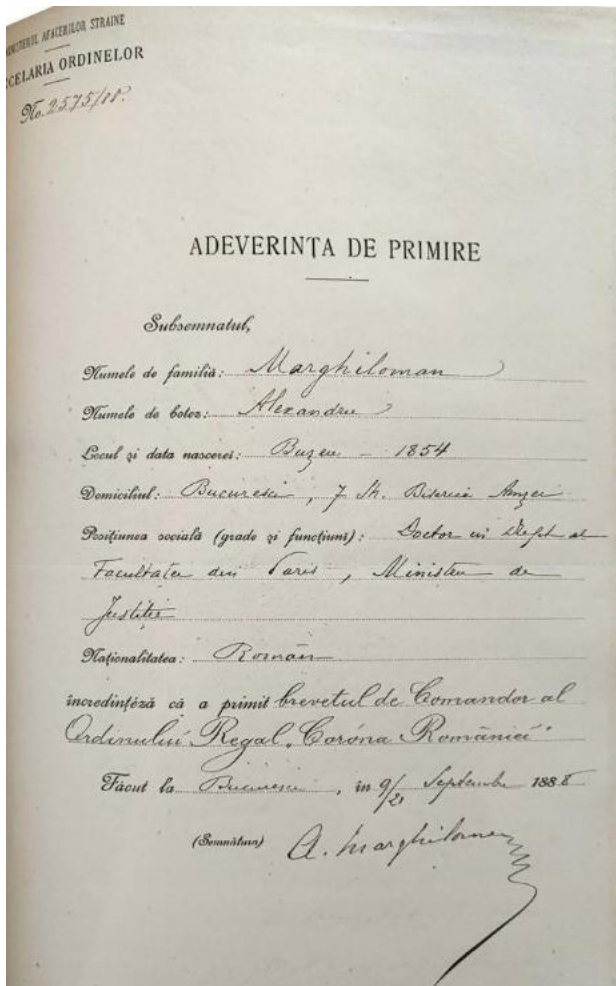 MINISTERUL AFACERILOR STRAINE
CELARIA ORDINELOR
No. 2575/88.
ADEVERINȚA DE PRIMIRE
Subsemnatul,
Numele de familiă: Marghiloman
Numele de botez: Alexandru
Locul și data nascerei: Buzeu – 1854
Domiciliul: Bucuresci, 7 St. Biserica Amzei
Posițiunea socială (grade și funcțiuni): Doctor in drept al
Facultatei din Paris, Ministru de
Justitie
Naționalitatea: Român
încredințéză că a primit brevetul de Comandor al
Ordinului Regal „Coróna României"
Făcut la Bucuresci, în 9/21 Septembre 1888
(Semnătura) A. Marghiloman